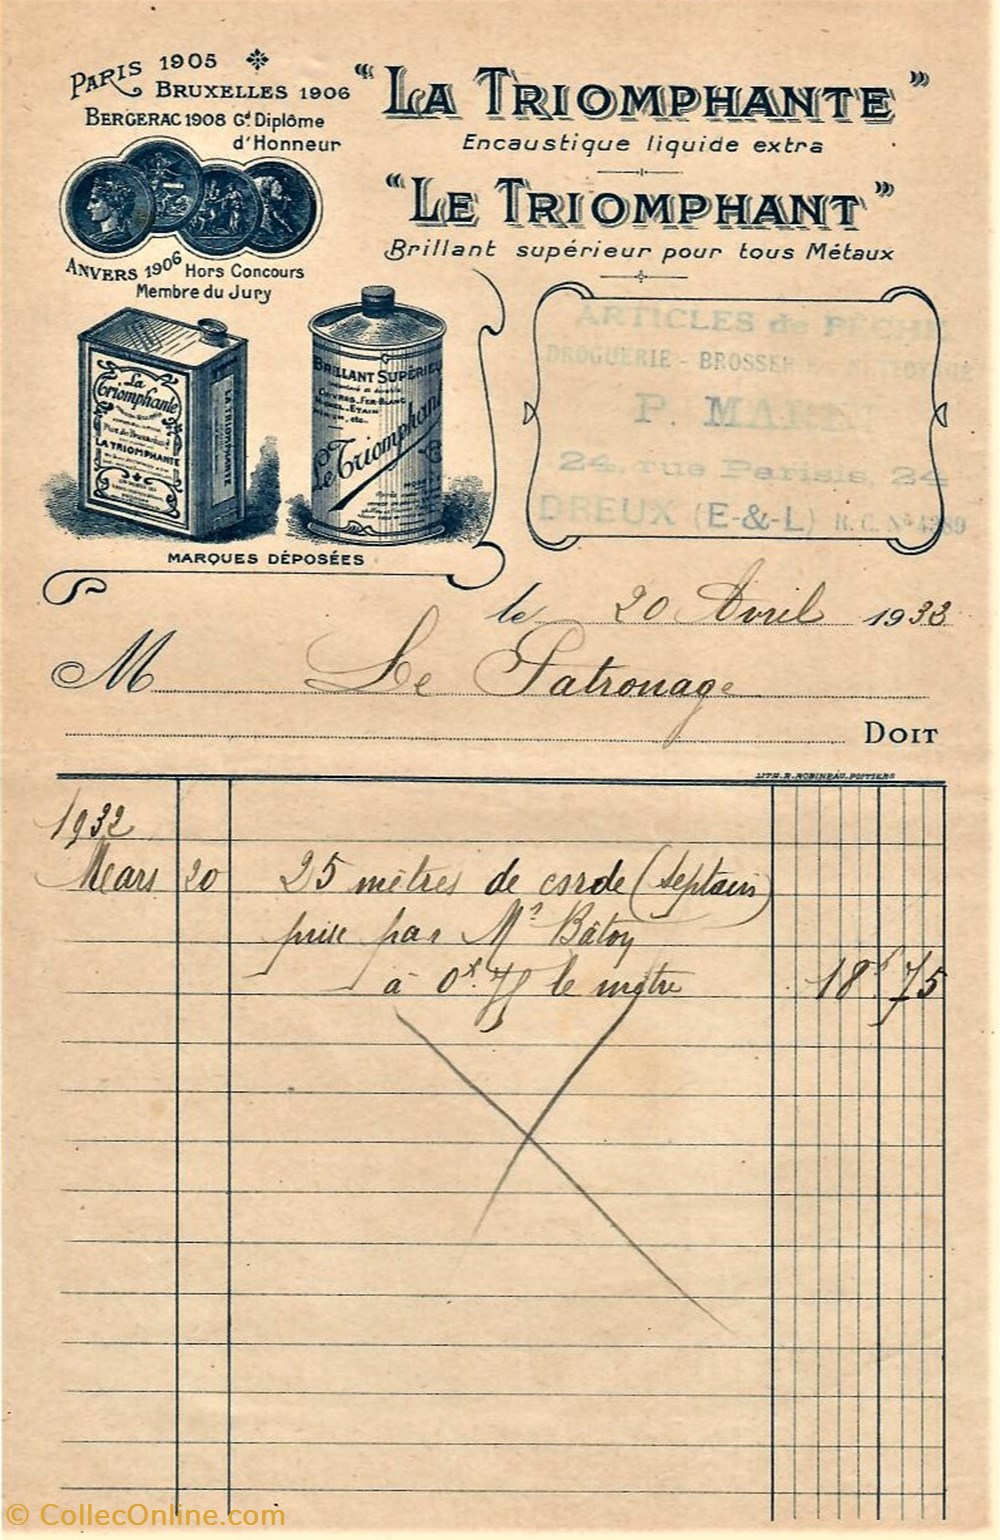 PARIS 1905
BRUXELLES 1906
BERGERAC 1908 Gd Diplôme
d'Honneur
ANVERS 1906 Hors Concours
Membre du Jury
"LA TRIOMPHANTE"
Encaustique liquide extra
"LE TRIOMPHANT"
Brillant supérieur pour tous Métaux
La
Triomphante
LA TRIOMPHANTE
LA TRIOMPHANTE
BRILLANT SUPÉRIEUR
CUIVRES, FER-BLANC
ETAIN
etc..
Le Triomphant
MARQUES DÉPOSÉES
ARTICLES de PÊCHE
DROGUERIE - BROSSERIE
P.
24, rue Parisis, 24
DREUX (E-&-L) R.C. No
le 20 Avril 1933
M Le Patronage
DOIT
LITH. R. ROBINEAU, POITIERS
1932
Mars 20 25 mètres de corde (septain)
prise par Mr Bâtoy
à 0f.75 le mètre 18f 75
© CollecOnline.com